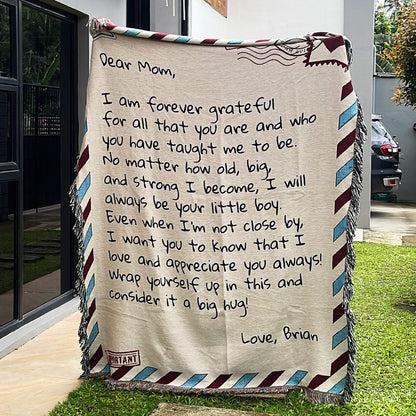 Dear Mom,
I am forever grateful
for all that you are and who
you have taught me to be.
No matter how old, big,
and strong I become, I will
always be your little boy.
Even when I'm not close by,
I want you to know that I
love and appreciate you always!
Wrap yourself up in this and
consider it a big hug!
Love, Brian
PORTANT